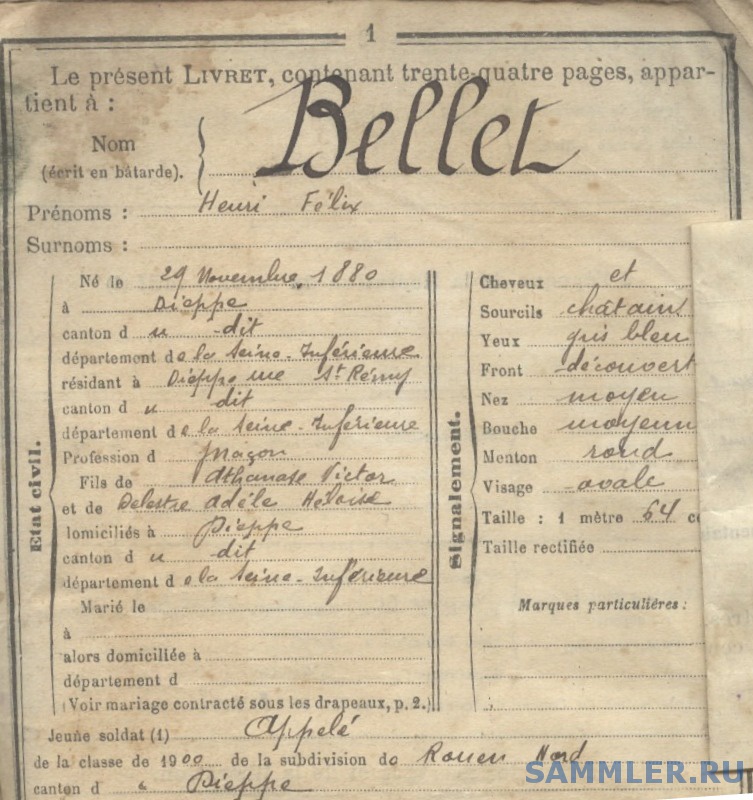 1
Le présent LIVRET, contenant trente-quatre pages, appar-
tient à :
Nom
(écrit en bâtarde). Bellet
Prénoms : Henri Félix
Surnoms :
Etat civil.
Né le 29 Novembre, 1880
à Dieppe
canton d u dit
département de la Seine-Inférieure
résidant à Dieppe rue St Rémy
canton d u dit
département de la Seine-Inférieure
Profession d maçon
Fils de Athanase Victor
et de Delestre Adèle Héloïse
lomiciliés à Dieppe
canton d u dit
département de la Seine-Inférieure
Marié le
à
alors domiciliée à
département d
(Voir mariage contracté sous les drapeaux, p. 2.)
Signalement.
Cheveux et
Sourcils châtains
Yeux gris bleu
Front découvert
Nez moyen
Bouche moyenn
Menton rond
Visage ovale
Taille : 1 mètre 64 ce
Taille rectifiée
Marques particulières :
Jeune soldat (1) Appelé
de la classe de 1900 de la subdivision de Rouen Nord
canton d « Dieppe
SAMMLER.RU